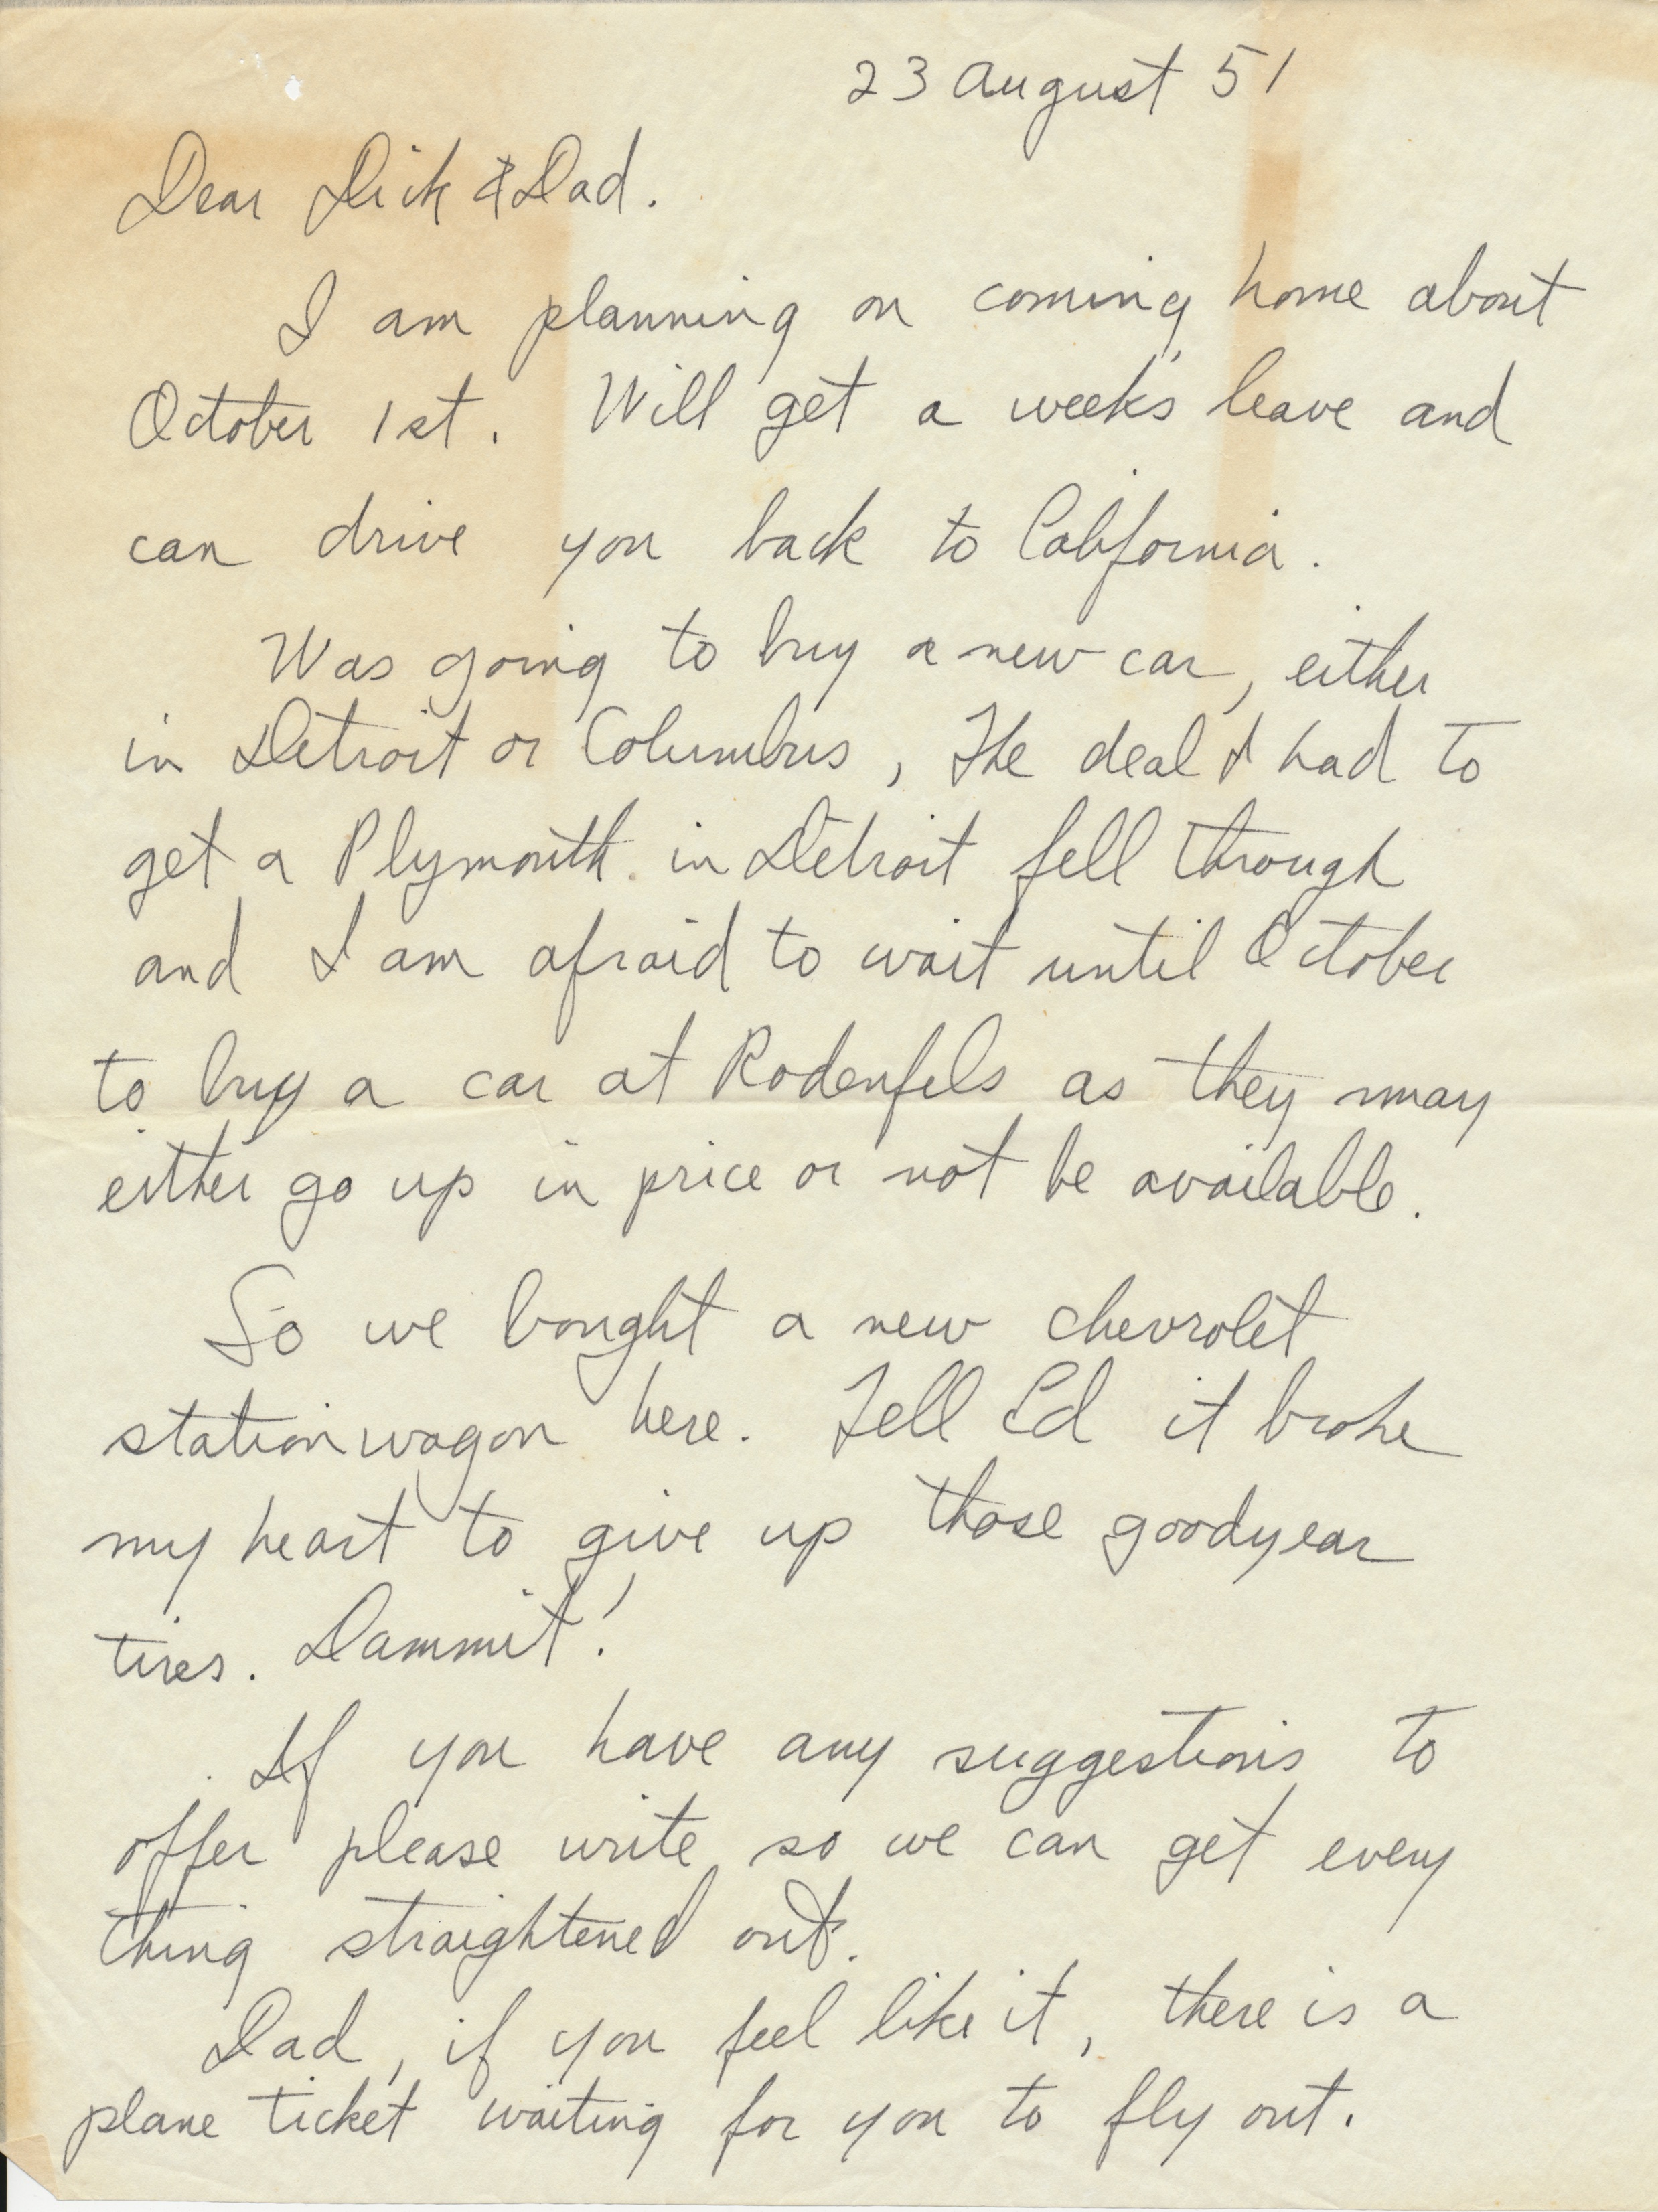 23 August 51
Dear Dick & Dad.
I am planning on coming home about
October 1st. Will get a week's leave and
can drive you back to California.
Was going to buy a new car, either
in Detroit or Columbus, The deal I had to
get a Plymouth in Detroit fell through
and I am afraid to wait until October
to buy a car at Rodenfels as they may
either go up in price or not be available.
So we bought a new chevrolet
stationwagon here. Tell Ed it broke
my heart to give up those goodyear
tires. Dammit!
If you have any suggestions to
offer please write so we can get every
thing straightened out.
Dad, if you feel like it, there is a
plane ticket waiting for you to fly out.